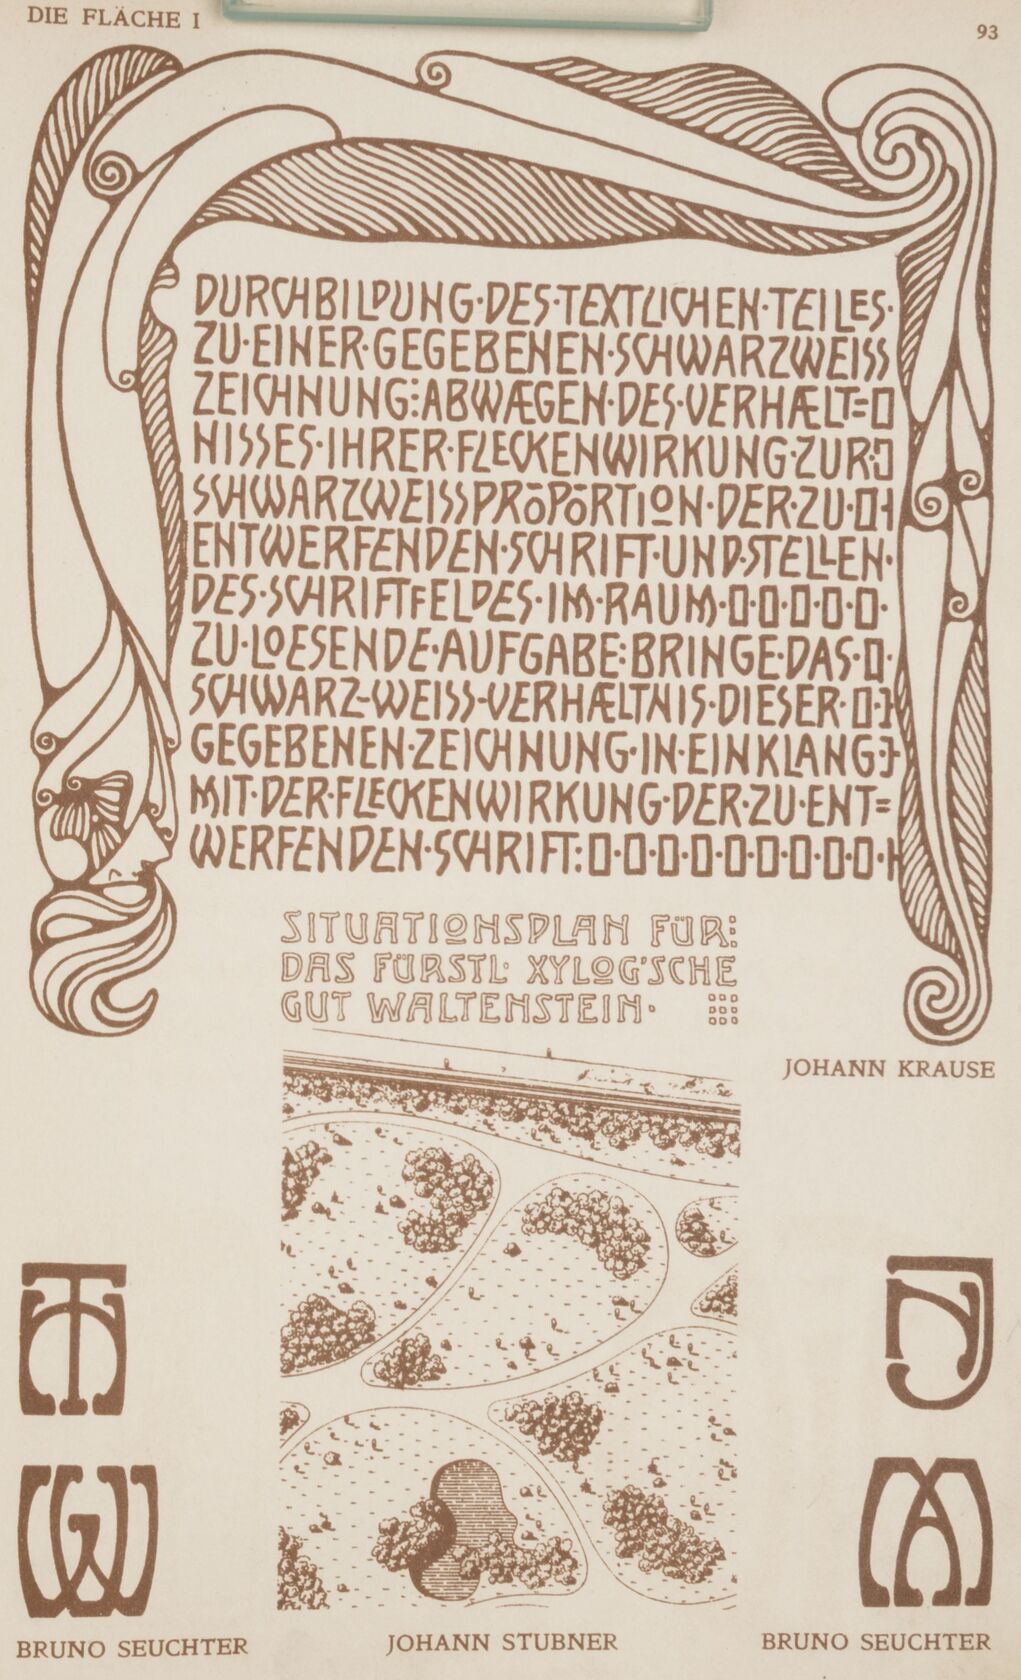 DIE FLÄCHE I
93
DURCHBILDUNG·DES·TEXTLICHEN·TEILES·
ZU·EINER·GEGEBENEN·SCHWARZWEISS
ZEICHNUNG:ABWÆGEN·DES·VERHÆLT=
NISSES·IHRER·FLECKENWIRKUNG·ZUR·
SCHWARZWEISSPRŌPŌRTION·DER·ZU·
ENTWERFENDEN·SCHRIFT·UND·STELLEN·
DES·SCHRIFTFELDES·IM·RAUM·
ZU·LOESENDE·AUFGABE:BRINGE·DAS·
SCHWARZ-WEISS-VERHÆLTNIS·DIESER·
GEGEBENEN·ZEICHNUNG·IN·EINKLANG
MIT·DER·FLECKENWIRKUNG·DER·ZU·ENT=
WERFENDEN·SCHRIFT:
SITUATIONSPLAN FÜR:
DAS FÜRSTL· XYLOG'SCHE
GUT WALTENSTEIN·
JOHANN KRAUSE
BRUNO SEUCHTER
JOHANN STUBNER
BRUNO SEUCHTER